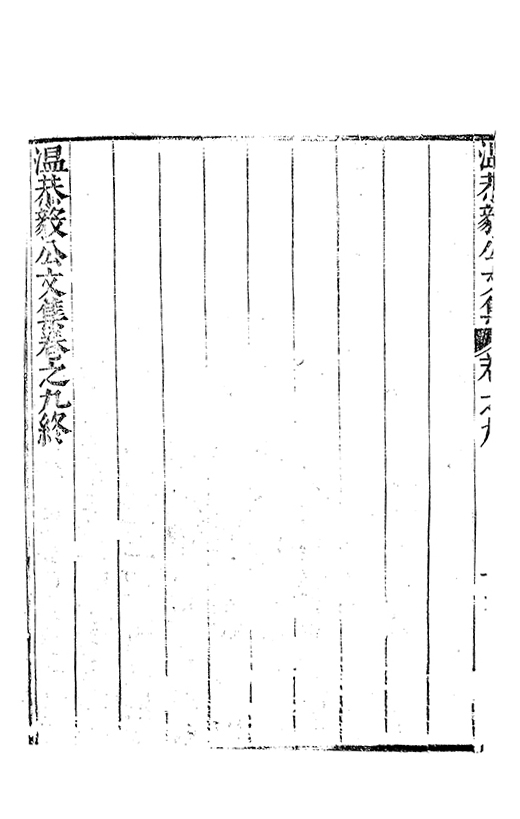 温恭毅公文集卷之九
温恭毅公文集卷之九終